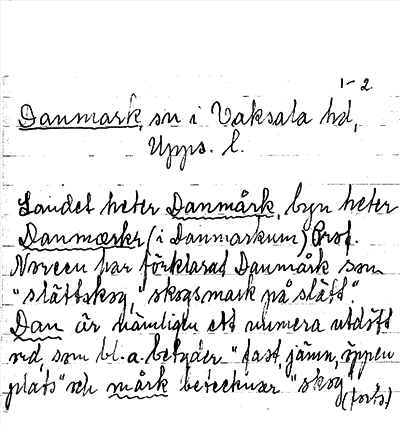 1-2
Danmark, sn i Vaksala hd,
Upps. l.
Landet heter Danmårk, byn heter
Danmærkr (i Danmarkum) Prof.
Noreen har förklarat Danmårk som
"slättskog, "skogsmark på slätt".
Dan är nämligen ett numera utdött
ord, som bl. a. betyder "fast, jämn, öppen
plats" och mårk betecknar "skog
(forts)